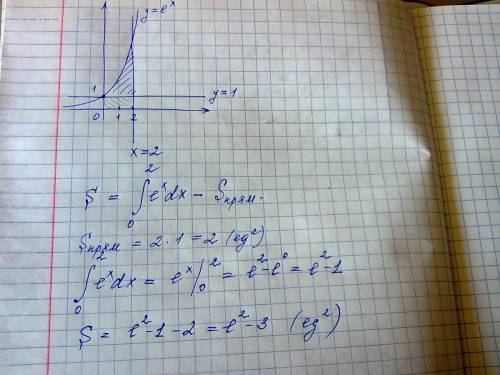 y=eˣ
1
y=1
0 1 2
x=2
S = ∫₀² eˣdx − Sпрям.
Sпрям = 2·1 = 2 (ед²)
∫₀² eˣdx = eˣ|₀² = e²-e⁰ = e²-1
S = e²-1-2 = e²-3 (ед²)